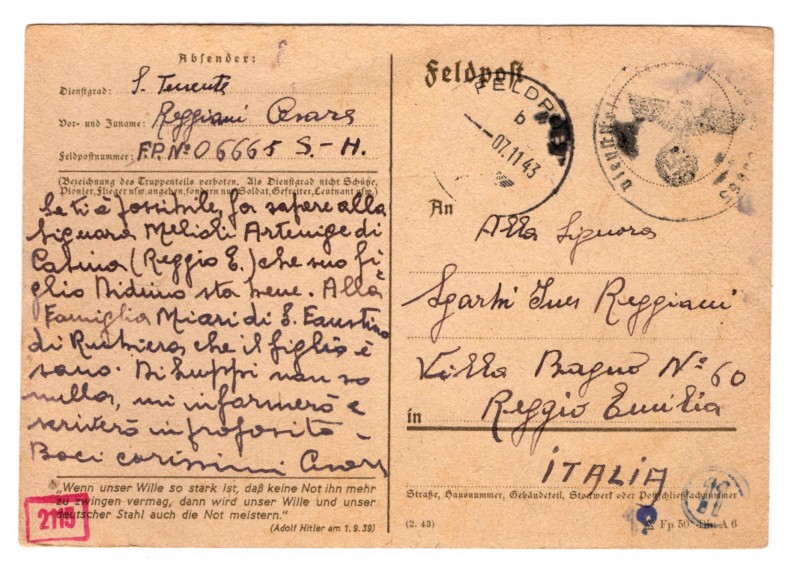 Absender:
Dienstgrad: S. Tenente
Vor- und Zuname: Reggiani Cesare
Feldpostnummer: F.P. Nº 06665 S.-H.
(Bezeichnung des Truppenteils verboten. Als Dienstgrad nicht Schütze,
Pionier, Flieger usw. angeben, sondern nur Soldat, Gefreiter, Leutnant usw.)
Se ti è possibile, fa sapere alla
Signora Melioli Artemige di
Catina (Reggio E.) che suo fi
glio Didimo sta bene. Alla
Famiglia Miari di S. Faustino
di Rubiera che il figlio è
sano. Di non so
nulla, mi informerò e
scriverò in proposito -
Baci carissimi Cesare
„Wenn unser Wille so stark ist, daß keine Not ihn mehr
zu zwingen vermag, dann wird unser Wille und unser
deutscher Stahl auch die Not meistern.“
(Adolf Hitler am 1. 9. 39)
2115
Feldpost
FELDPOST
b
07.11.43
An
Alla Signora
Sgarbi Ines Reggiani
Villa Bagno Nº 60
in
Reggio Emilia
ITALIA
Straße, Hausnummer, Gebäudeteil, Stockwerk oder Postschließfachnummer
(2. 43)
Fp 50 Din A 6